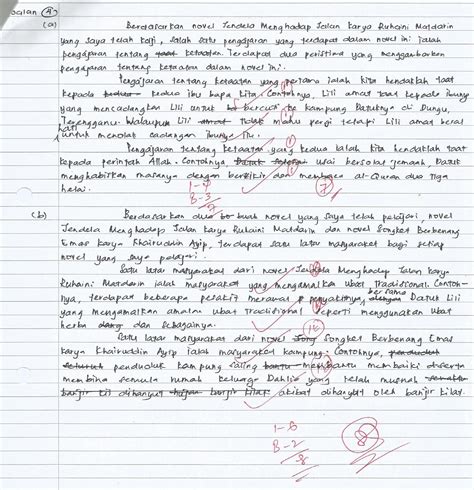 Soalan 4
(a) Berdasarkan novel Jendela Menghadap Jalan karya Ruhaini Matdarin
yang saya telah kaji, salah satu pengajaran yang terdapat dalam novel ini ialah
pengajaran tentang ketaatan. Terdapat dua peristiwa yang menggambarkan
pengajaran tentang ketaatan dalam novel ini.
Pengajaran tentang ketaatan yang pertama ialah kita hendaklah taat
kepada kedua ibu bapa kita. Contohnya, Lili amat taat kepada ibunya
yang mencadangkan Lili untuk bercuti ke kampung Datuknya di Dungun,
Terengganu. Walaupun Lili tidak mahu pergi tetapi Lili amat berat
hati untuk menolak cadangan ibunya itu.
Pengajaran tentang ketaatan yang kedua ialah kita hendaklah taat
kepada perintah Allah. Contohnya, usai bersolat jemaah, Datuk
menghabiskan masanya dengan berzikir dan membaca al-Quran dua tiga
helai.
I-4
B-3
7
7
(b) Berdasarkan dua buah novel yang saya telah pelajari, novel
Jendela Menghadap Jalan karya Ruhaini Matdarin dan novel Songket Berbenang
Emas karya Khairuddin Ayip, terdapat satu latar masyarakat bagi setiap
novel yang saya pelajari.
Satu latar masyarakat dari novel Jendela Menghadap Jalan karya
Ruhaini Matdarin ialah masyarakat yang mengamalkan ubat Tradisional. Contoh-
nya, terdapat beberapa pesakit merawat penyakitnya bersama Datuk Lili
yang mengamalkan amalan ubat tradisional seperti menggunakan ubat
herba dan sebagainya.
Satu latar masyarakat dari novel Songket Berbenang Emas
karya Khairuddin Ayip ialah masyarakat kampung. Contohnya,
penduduk kampung saling membantu membaiki diserta
membina semula rumah keluarga Dahlia yang telah musnah
akibat dihanyut oleh banjir kilat.
I-6
B-2
8
8